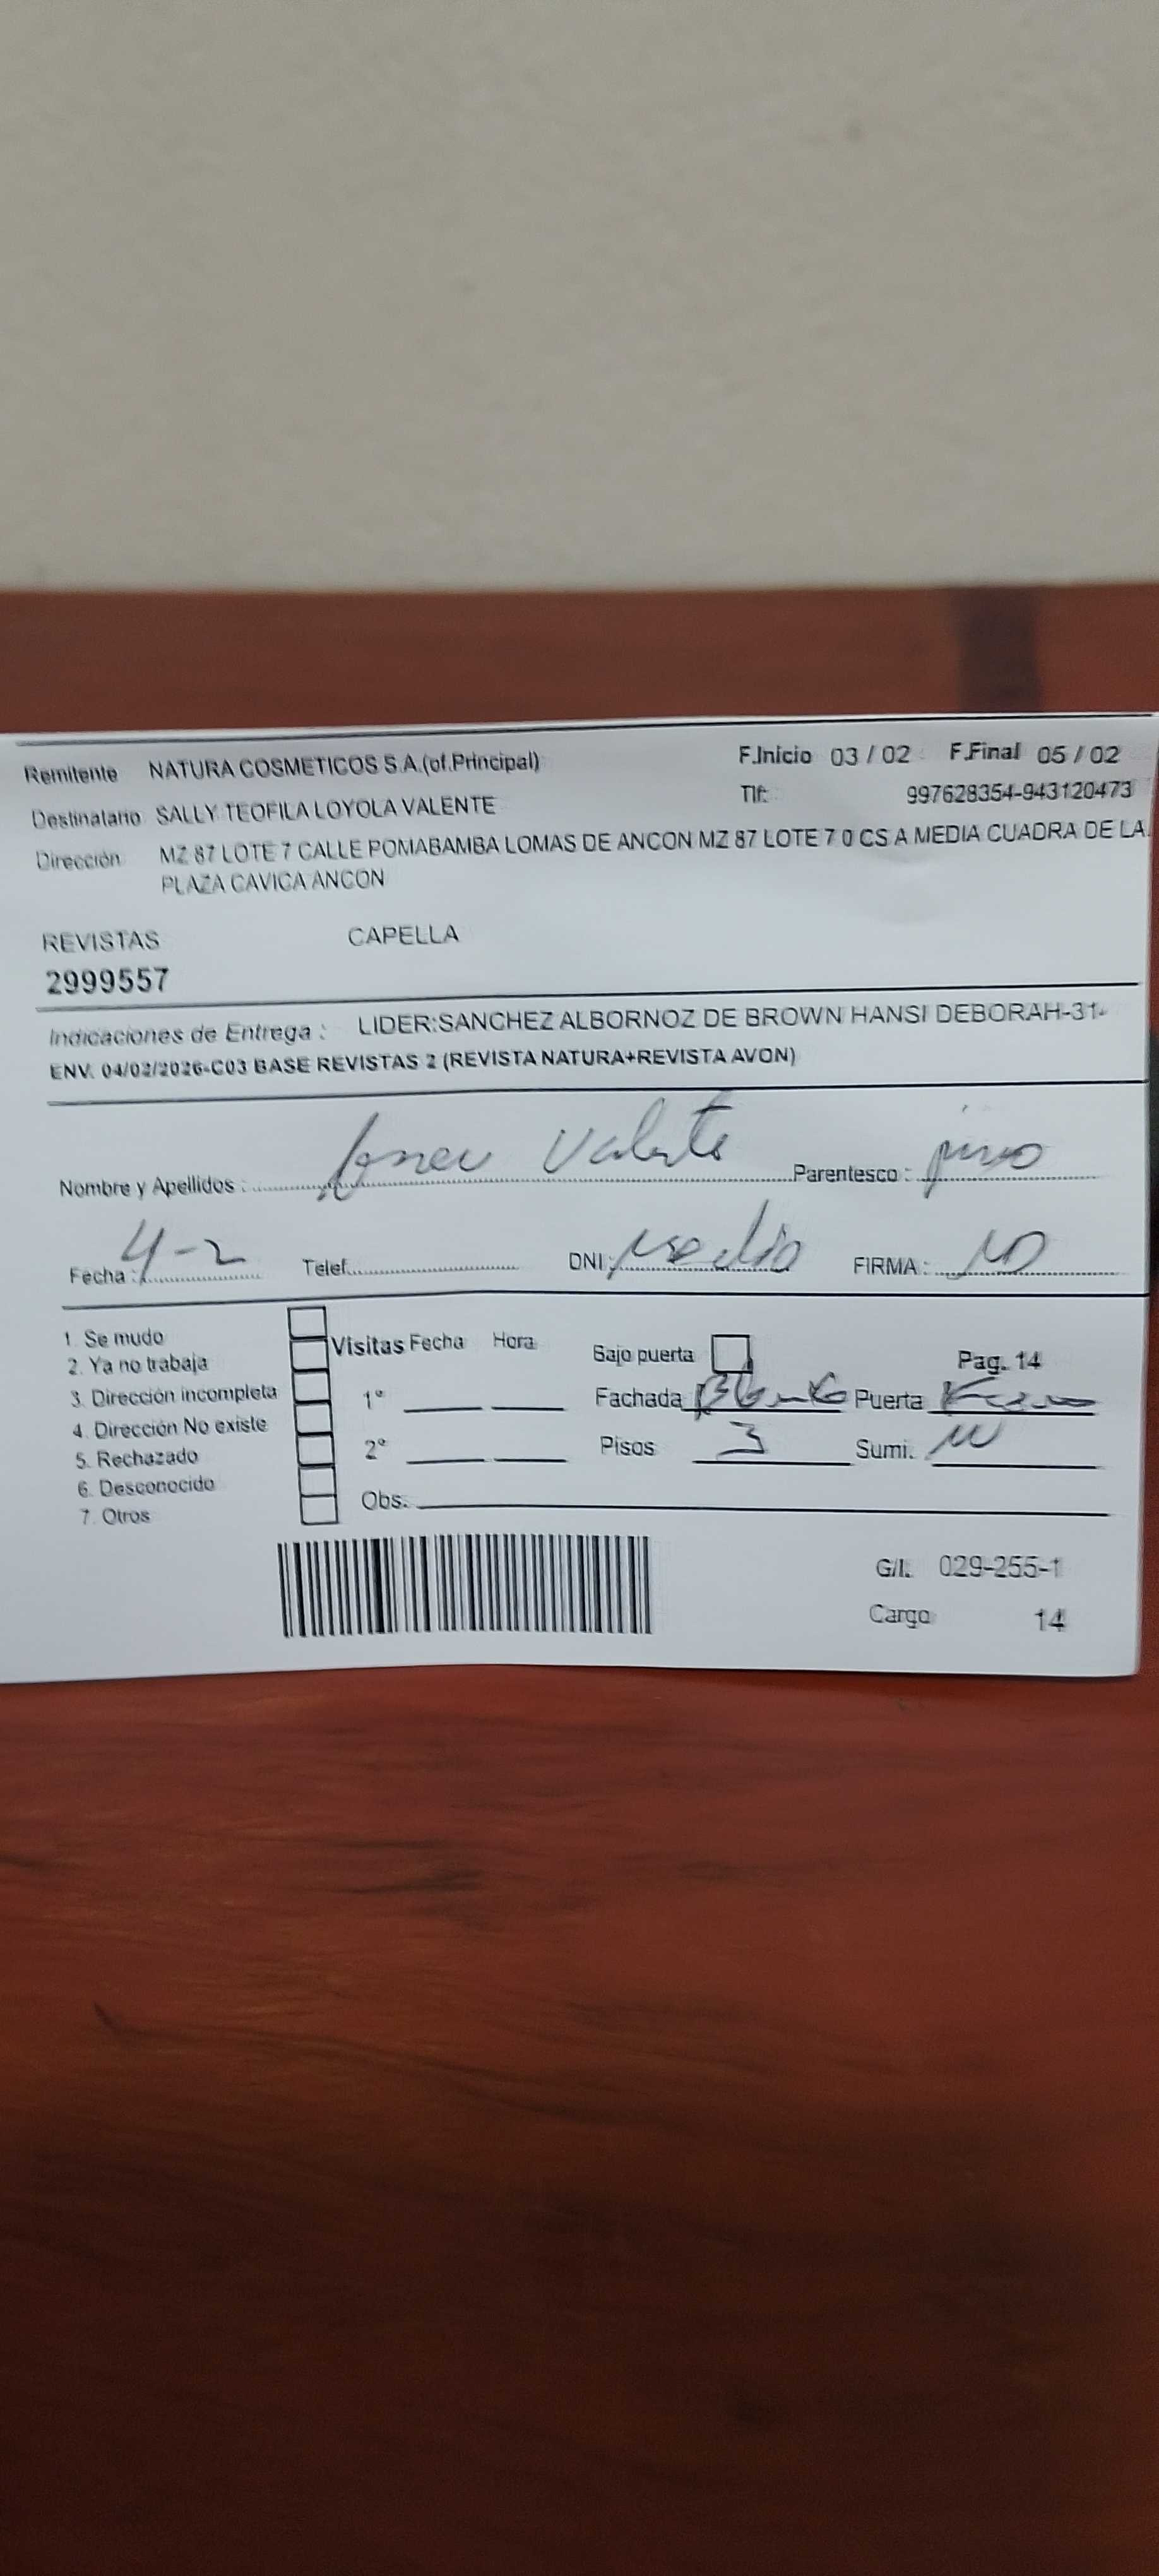 Remitente NATURA COSMETICOS S.A.(of.Principal) F.Inicio 03 / 02 F.Final 05 / 02
Destinatario SALLY TEOFILA LOYOLA VALENTE Tlf: 997628354-943120473
Dirección MZ 87 LOTE 7 CALLE POMABAMBA LOMAS DE ANCON MZ 87 LOTE 7 0 CS A MEDIA CUADRA DE LA
PLAZA CAVICA ANCON
REVISTAS CAPELLA
2999557
Indicaciones de Entrega : LIDER:SANCHEZ ALBORNOZ DE BROWN HANSI DEBORAH-31-
ENV. 04/02/2026-C03 BASE REVISTAS 2 (REVISTA NATURA+REVISTA AVON)
Nombre y Apellidos : Valente Parentesco :
Fecha : 4-2 Telef. DNI: FIRMA :
1. Se mudo
2. Ya no trabaja
3. Dirección incompleta
4. Dirección No existe
5. Rechazado
6. Desconocido
7. Otros
Visitas Fecha Hora
1°
2°
Obs.
Bajo puerta Pag. 14
Fachada Puerta
Pisos 3 Sumi.
G/L. 029-255-1
Cargo 14